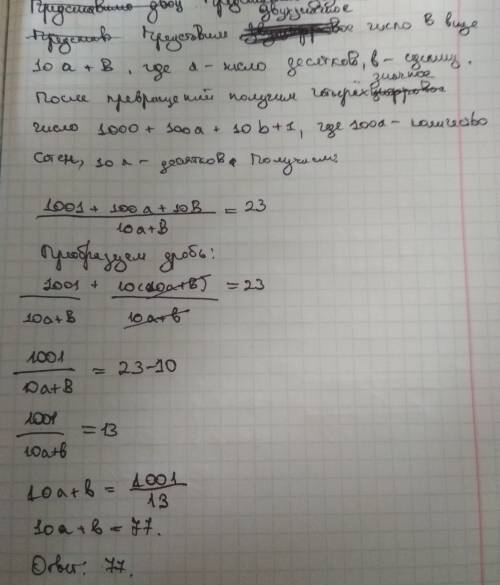 Представим двузначное
Представим число в виде
10a + b, где a - число десятков, b - единиц.
После превращений получим четырёхзначное
число 1000 + 100a + 10b + 1, где 100a - количество
сотен, 10a - десятков. Получаем:
1001 + 100a + 10b / 10a+b = 23
Преобразуем дробь:
1001 / 10a+b + 10(10a+b) / 10a+b = 23
1001 / 10a+b = 23-10
1001 / 10a+b = 13
10a+b = 1001 / 13
10a+b = 77.
Ответ: 77.